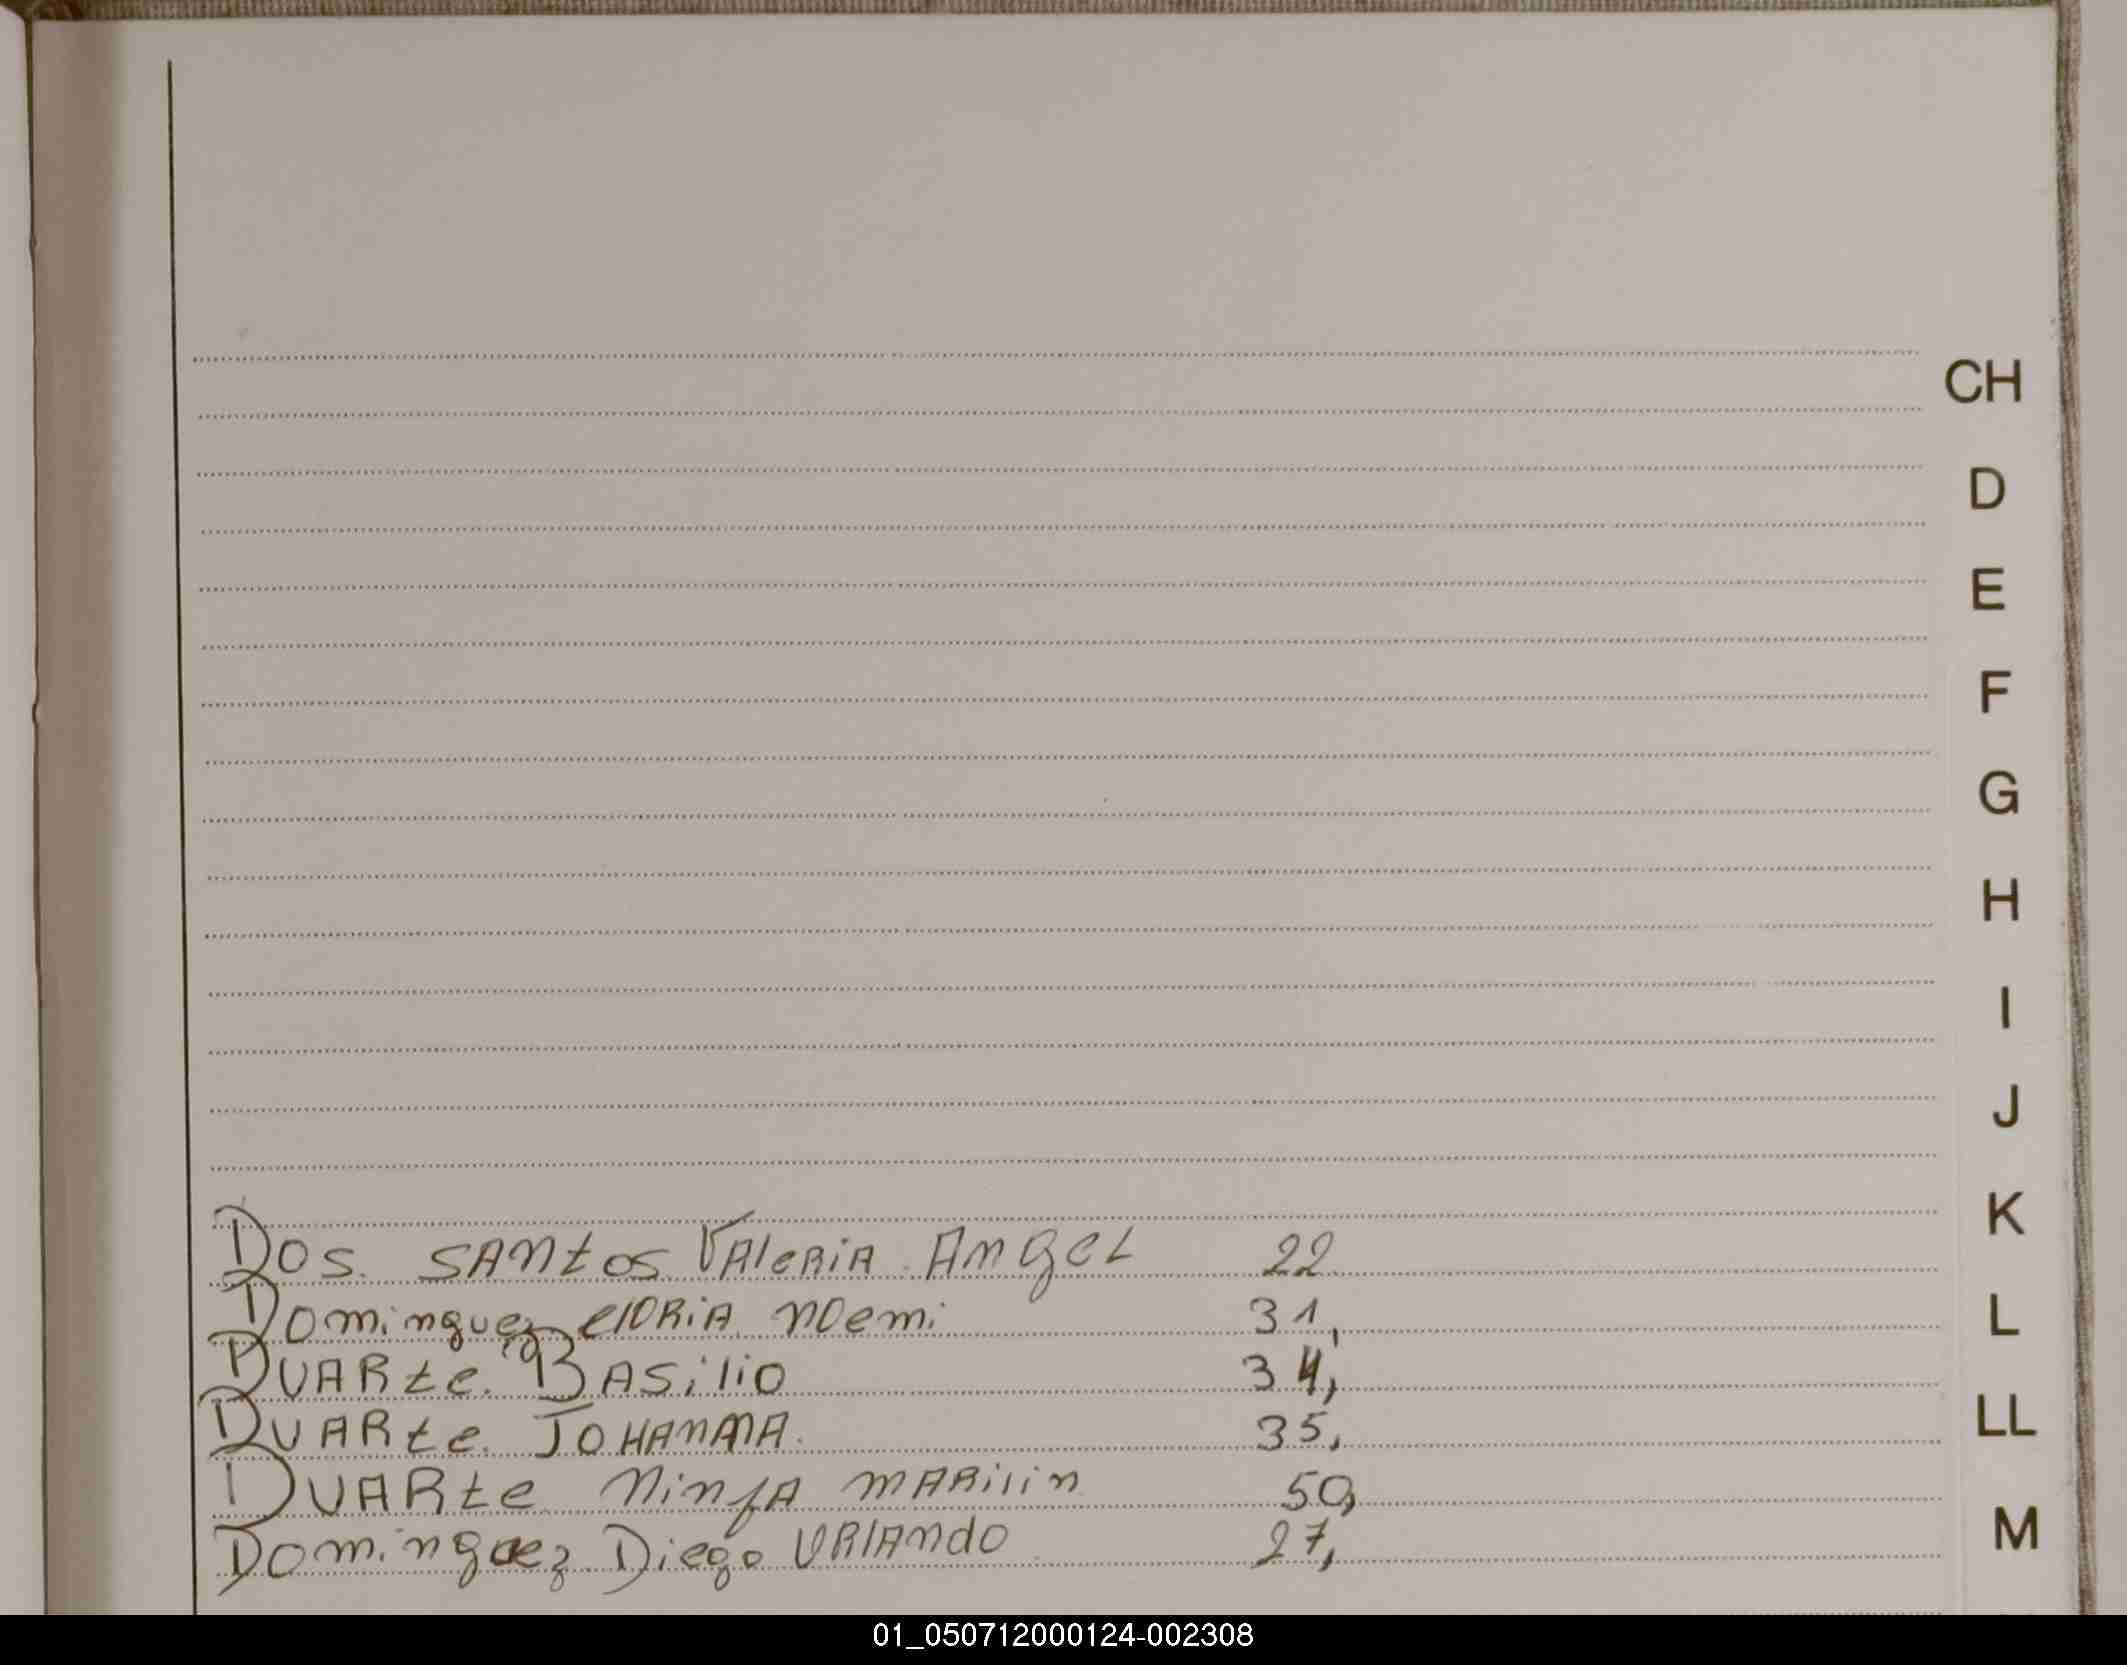 CH
D
E
F
G
H
I
J
K
L
LL
M
Dos. SAntos VAleRiA. AngeL 22
Dominguez elDRiA noemi 31,
DUARte. BASilio 34,
DUARte. JOHANNA. 35,
DUARte ninfA mARilin 50,
Dominguez Diego ORlAndo 27,
01_050712000124-002308